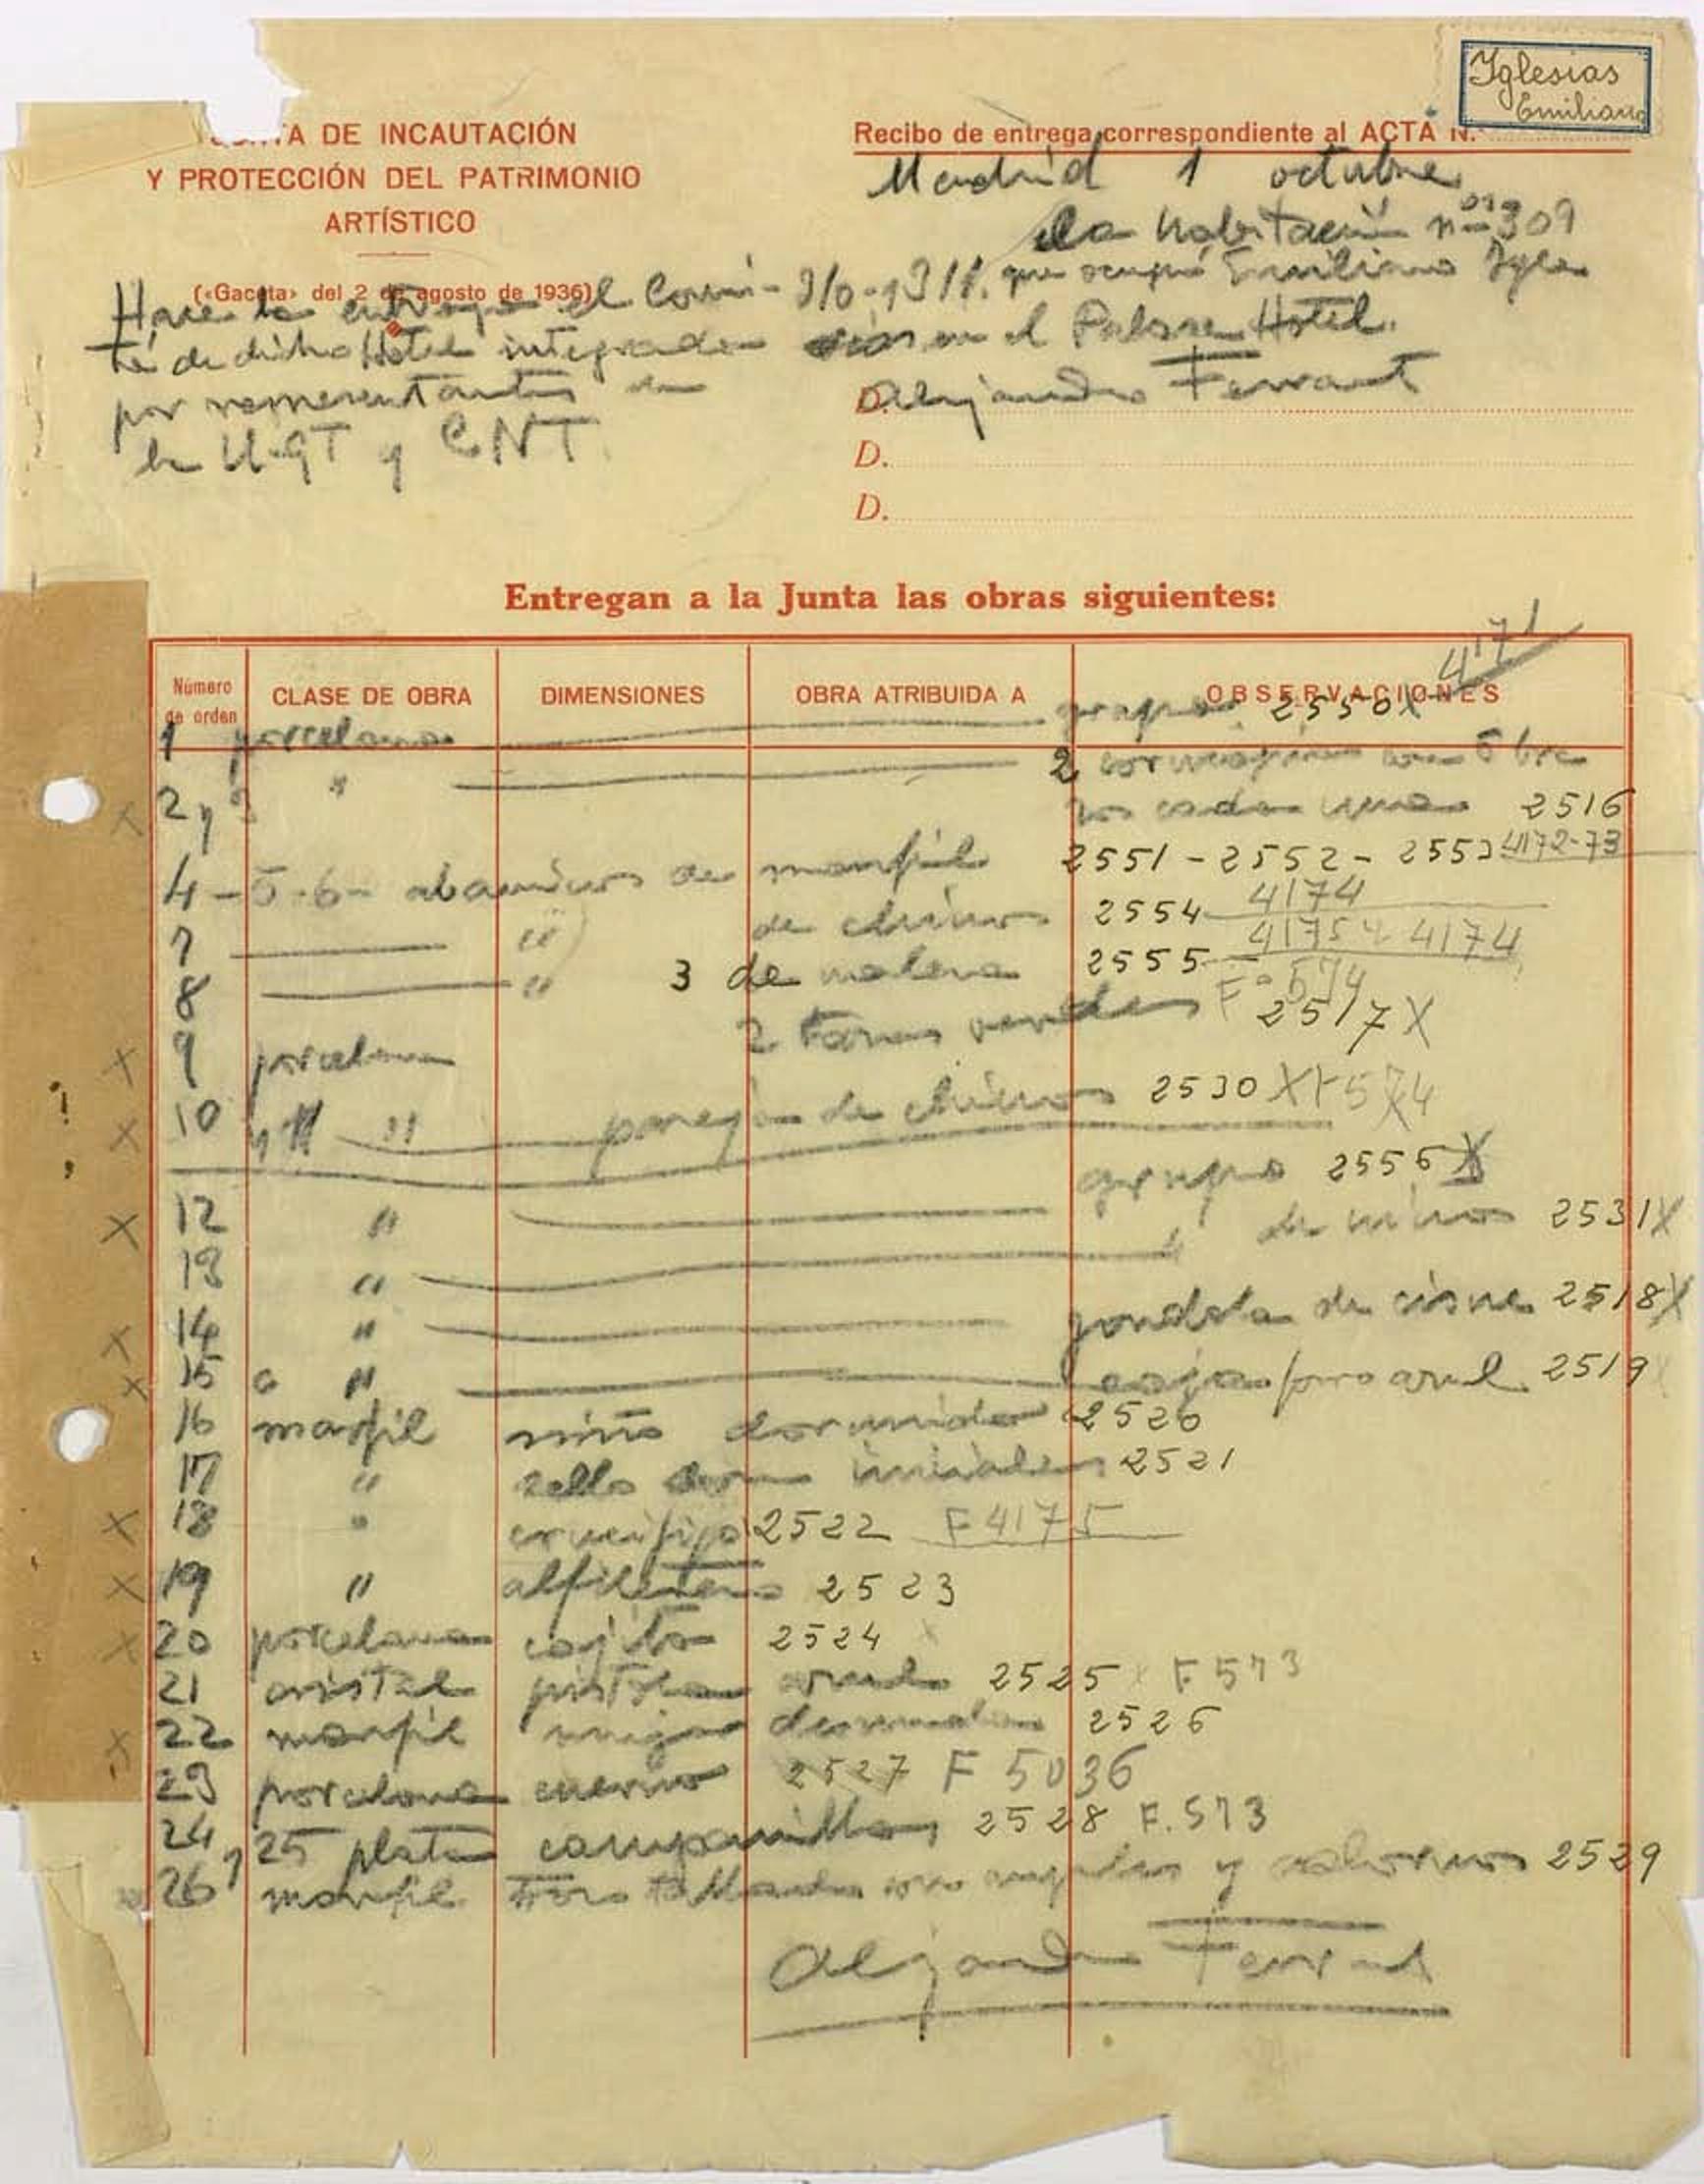 Iglesias
Emiliano
JUNTA DE INCAUTACIÓN
Y PROTECCIÓN DEL PATRIMONIO
ARTÍSTICO
(«Gaceta» del 2 de agosto de 1936)
Recibo de entrega correspondiente al ACTA N.
Madrid 1 octubre
la habitación nº 309
que ocupó Emiliano Igle
sias en el Palace Hotel.
Hace la entrega el Comi-
té de dicho Hotel integrado
por representantes de
la U.G.T y CNT.
D. Alejandro Ferrant
D.
D.
Entregan a la Junta las obras siguientes:
4171
Número de orden CLASE DE OBRA DIMENSIONES OBRA ATRIBUIDA A OBSERVACIONES
1 porcelana grupo 2550 X
2 y 3 " 2 cornucopias con 5 bra
zos cada una 2516
4-5-6- abanicos de marfil 2551-2552-2553 4172-73
7 " de chinos 2554 4174
8 " 3 de 2555 4175 4174
9 porcelana 2 verdes Fº 574 2517 X
10 y 11 " pareja de chinos 2530 X F 574
12 " grupo 2556 X
13 " " de niños 2531 X
14 " gondola de cisne 2518 X
15 " caja forro azul 2519 X
16 marfil niño dormido 2520
17 " sello con iniciales 2521
18 " crucifijo 2522 F 4175
19 " alfiletero 2523
20 porcelana cajita 2524 X
21 cristal pistola azul 2525 X F 573
22 marfil mujer desnuda 2526
23 porcelana 2527 F 5036
24 y 25 plata campanillas 2528 F. 573
26 marfil tallado con angelitos y 2529
Alejandro Ferrant